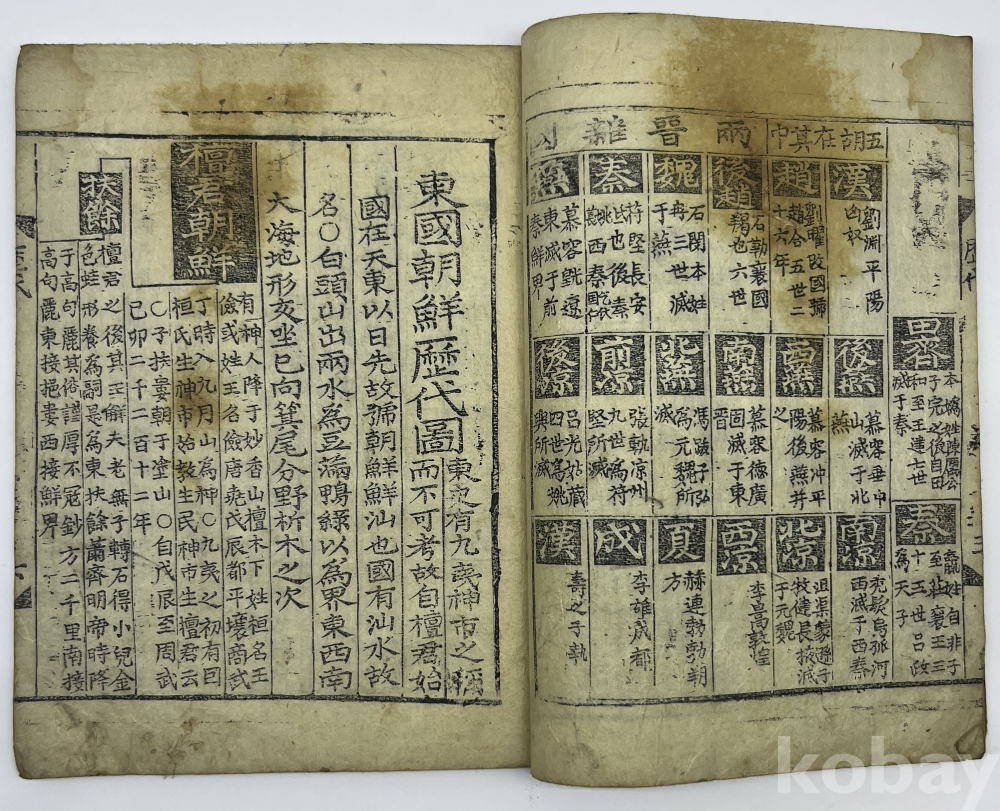 歷代
田齊
本嬀姓陳厲公
子完之後自田
和至王建七世
滅于秦
秦
嬴姓自非子
至莊襄王三
十五世呂政
爲天子
五胡在其中
兩晉雜
漢
劉淵平陽
匈奴
趙
劉曜改國號
趙合五世二
十六年
後趙
石勒襄國
羯也六世
魏
石閔本姓
冉三世滅
于燕
秦
苻堅長安
氐也後秦
姚
西秦
燕
慕容皝遼
東滅于前
秦鮮卑
後燕
慕容垂中
山滅于北
燕
西燕
慕容冲平
陽後燕幷
之
南燕
慕容德廣
固滅于東
晉
北燕
馮跋子弘
爲元魏所
滅
前凉
張軌凉州
九世爲苻
堅所滅
後凉
呂光姑藏
四世爲姚
興所滅
南凉
禿髮烏孤河
西滅于西秦
北凉
沮渠蒙遜子
牧健長掖滅
于元魏
西凉
李暠敦煌
夏
赫連勃勃朔
方
成
李雄成都
漢
壽之子執
東國朝鮮歷代圖
東史有九夷神市之
而不可考故自檀君始
國在天東以日先故號朝鮮鮮汕也國有汕水故
名〇白頭山出兩水爲豆滿鴨綠以爲界東西南
大海地形亥坐巳向箕尾分野析木之次
檀君朝鮮
有神人降于妙香山檀木下姓桓名王
儉或姓王名儉唐堯戊辰都平壤商武
丁時入九月山爲神〇九夷之初有曰
桓氏生神市始敎生民神市生檀君云
〇子扶婁朝于塗山〇自戊辰至周武
己卯一千二百十二年
扶餘
檀君之後其王解夫老無子轉石得小兒金
色蛙形養爲嗣是爲東扶餘蕭齊明帝時降
于高句麗其俗謹厚不冠鈔方二千里南接
高句麗東接挹婁西接鮮卑
六
kobay